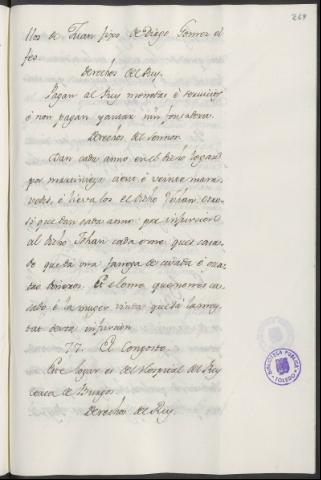 269
llos de Juan fijo de Diego Gomez el
feo.
Derechos del Rey.
Pagan al Rey monedas é servicios
é non pagan yantar nin fonsadera.
Derechos del Sennor.
Dan cada anno en el dicho logar
por martiniega ciento é veinte mara-
vedis, é lieva los el dicho Johan. Otro-
si que dan cada anno por infurcion
al dicho Johan cada ome ques casa-
do queda una fanega de cevada é
dineros. E el ome que non es ca-
sado, é la muger viuda queda la mey-
tat desta infurcion.
77. El Congosto.
Este logar es del Hospital del Rey
cerca de Burgos.
Derechos del Rey.
BIBLIOTECA PUBLICA
TOLEDO